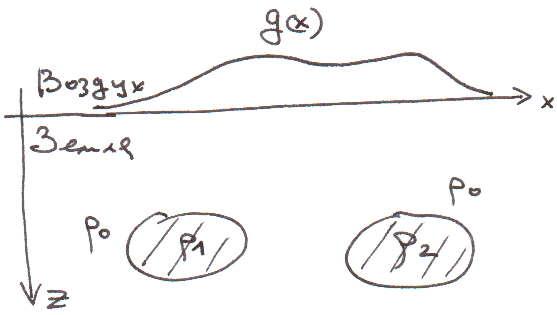 g(x)
Воздух
x
Земля
ρ0
ρ0
ρ1
ρ2
z